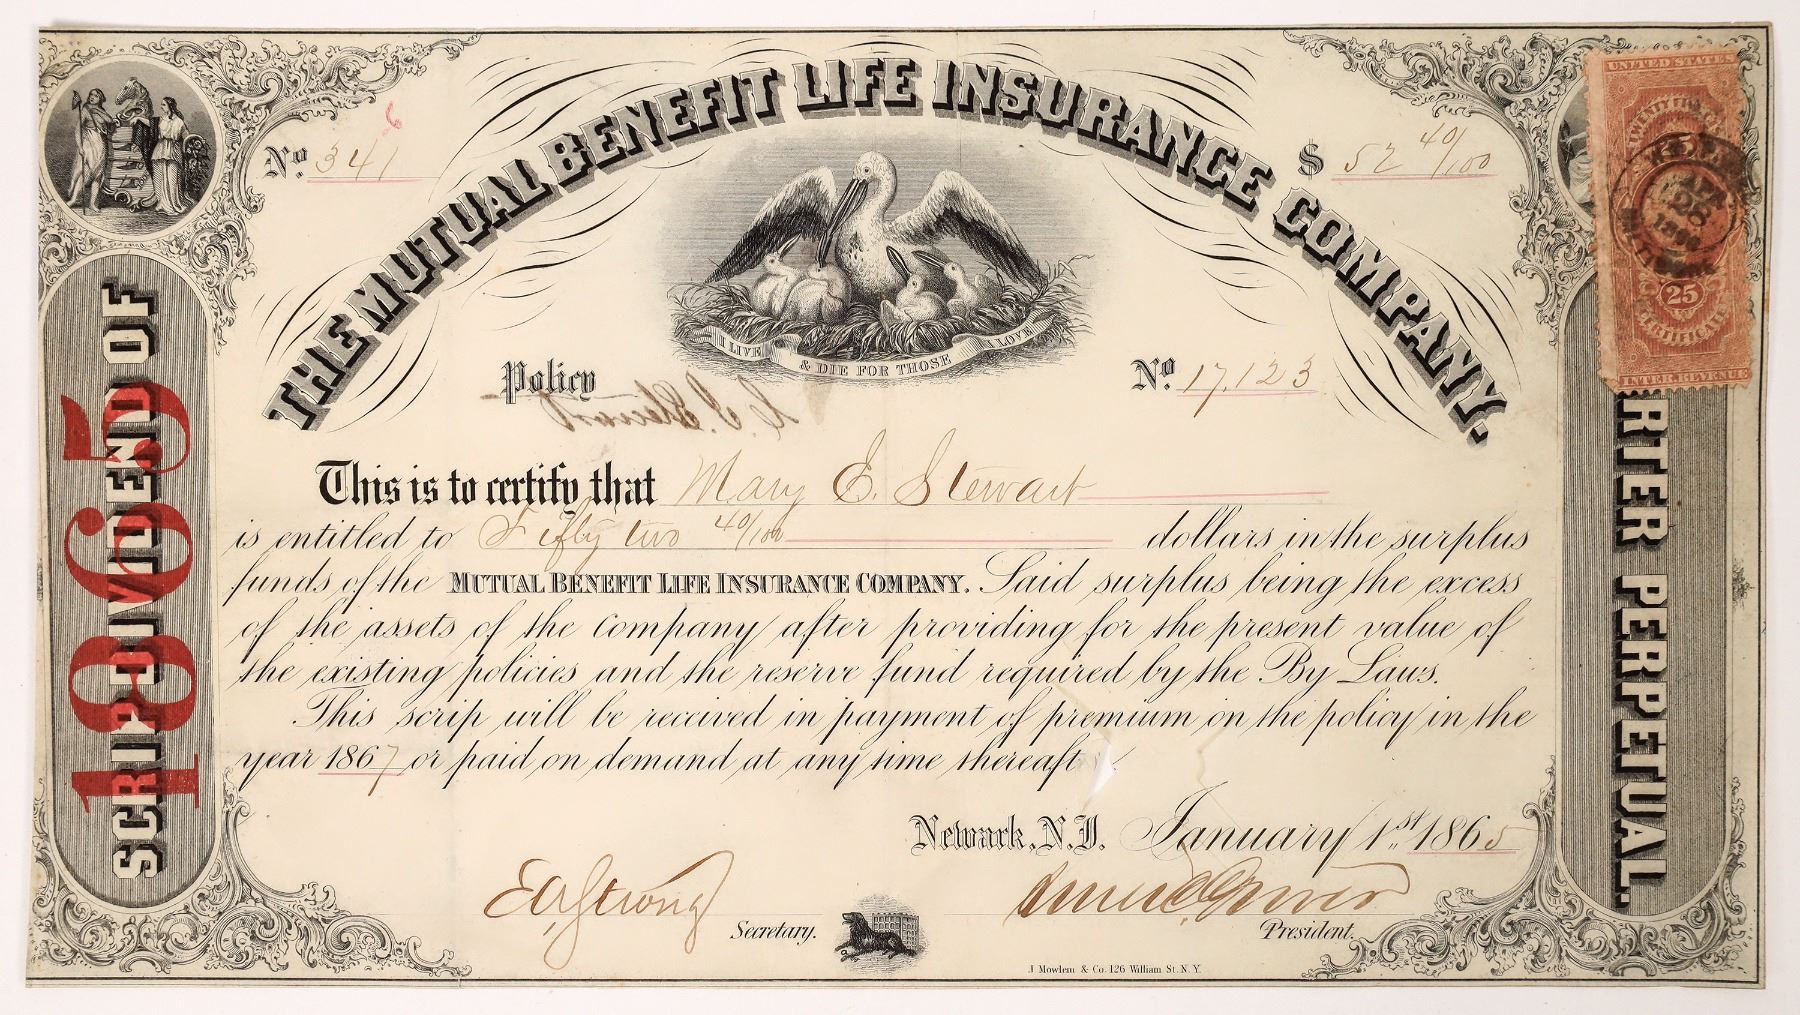 THE MUTUAL BENEFIT LIFE INSURANCE COMPANY.
6
No. 341
$ 52 40/100
UNITED STATES
25
25
CERTIFICATE
INTER. REVENUE
SCRIP DIVIDEND OF
1865
RTER PERPETUAL.
I LIVE & DIE FOR THOSE I LOVE
Policy No. 17,123
This is to certify that Mary E. Stewart
is entitled to Fifty two 40/100 dollars in the surplus
funds of the MUTUAL BENEFIT LIFE INSURANCE COMPANY. Said surplus being the excess
of the assets of the Company after providing for the present value of
the existing policies and the reserve fund required by the By Laws.
This scrip will be received in payment of premium on the policy in the
year 1867 or paid on demand at any time thereaft
Newark, N.J. January 1st 1865
EA Strong Secretary.
President.
J Mowlem & Co. 126 William St. N.Y.